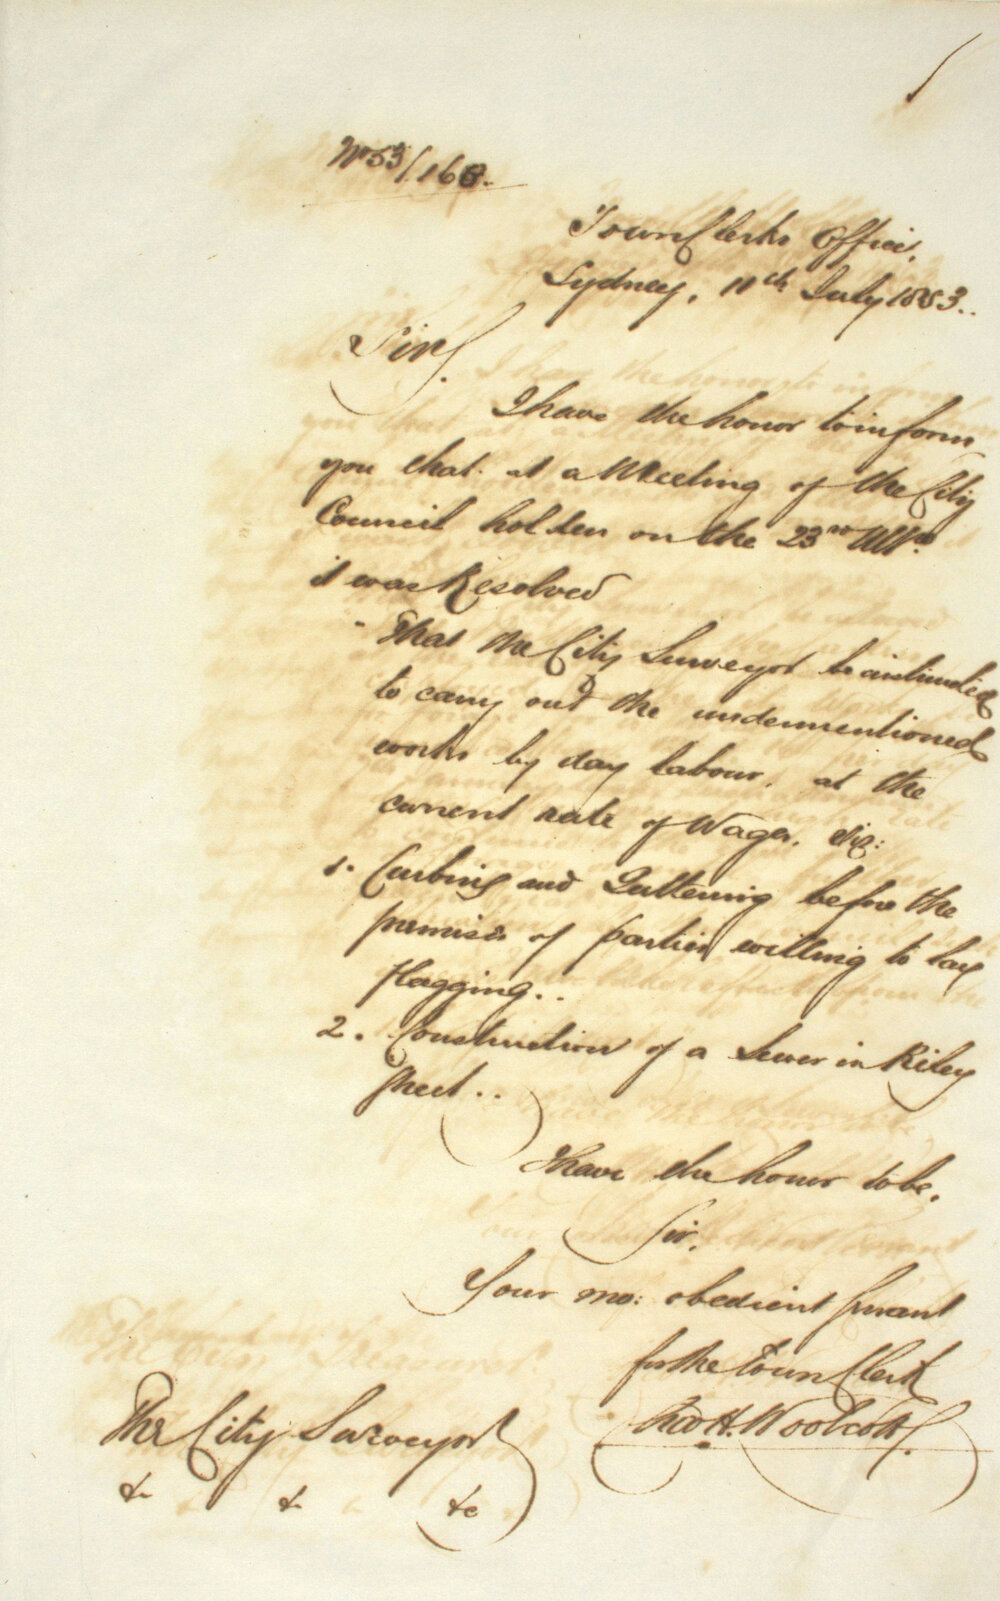 No 53/168.
Town Clerks Office,
Sydney, 11th July 1853..
Sir,
I have the honor to inform
you that at a Meeting of the City
Council holden on the 23rd Ulto.
it was Resolved
"That the City Surveyor be instructed
to carry out the undermentioned
works by day labour, at the
current rate of Wages, viz:
1. Curbing and Guttering before the
premises of parties willing to lay
flagging..
2. Construction of a Sewer in Riley
Street..
I have the honor to be,
Sir,
Your mo: obedient Servant
for the Town Clerk
Woolcott.
The City Surveyor
&c &c &c